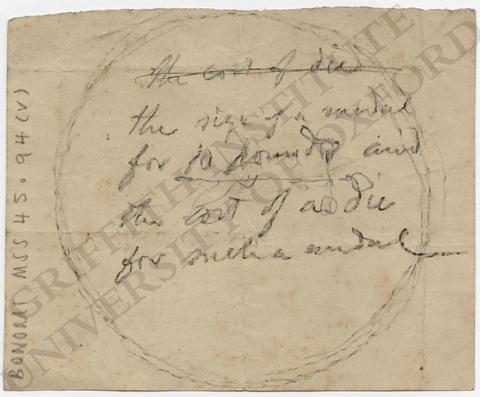 The cost of dies
the size of a medal
for 10 pounds and
the cost of a die
for such a medal
BONOMI MSS 45.94 (V)
GRIFFITH INSTITUTE
UNIVERSITY OF OXFORD